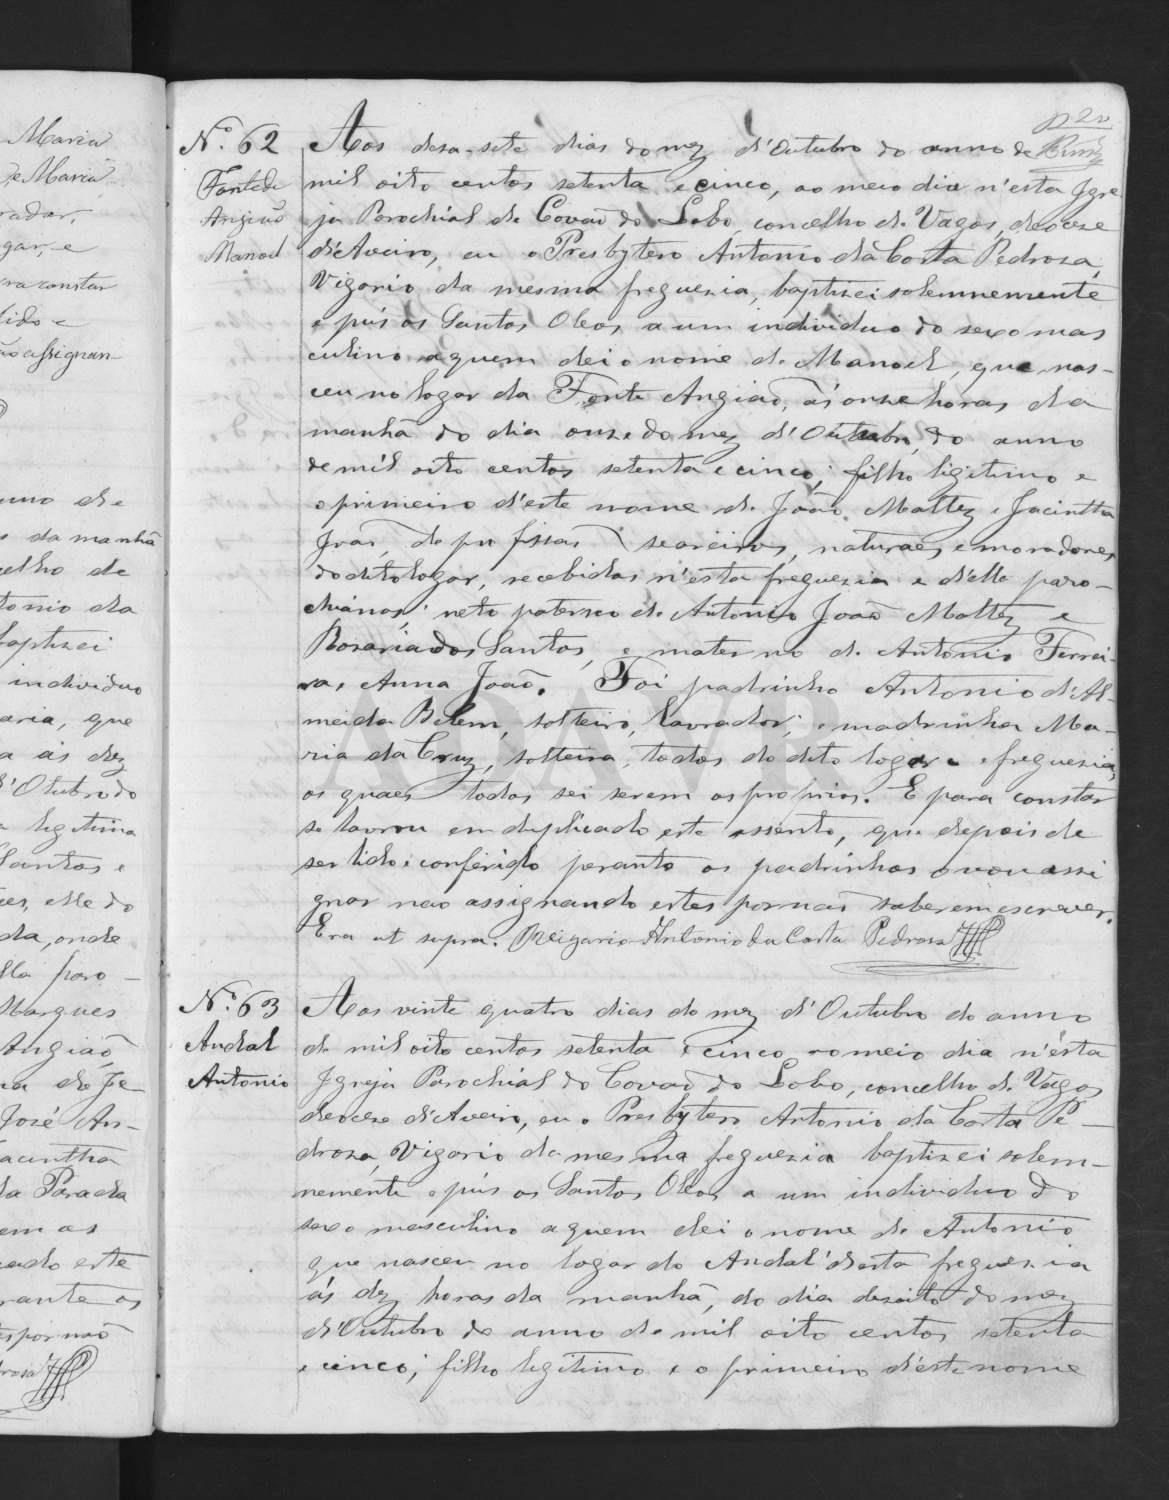 Nº 62
Fonte de
Angião
Manoel
Aos desa-sete dias do mez d'Outubro do anno de
mil oito centos setenta e cinco, ao meio dia n'esta Igre
ja Parochial de Covão do Lobo, concelho de Vagos, diocese
d'Aveiro, eu o Presbytero Antonio da Costa Pedrosa,
Vigario da mesma freguezia, baptizei solemnemente
e pús os Santos Oleos a um individuo do sexo mas
culino a quem dei o nome de Manoel, que nas-
ceu no logar da Fonte Angião, ás onze horas da
manhã do dia onze do mez d'Outubro, do anno
de mil oito centos setenta e cinco; filho ligitimo e
o primeiro d'este nome de João Mattez e Jacintha
João, de pro fissão seareiros, naturaes e moradores
do dito logar, recebidos n'esta freguezia e d'ella paro-
chianos; neto paterno de Antonio João Mattez e
Rosaria dos Santos, e materno de Antonio Ferrei-
ra e Anna João. Foi padrinho Antonio d'Al-
meida Belem, solteiro, lavrador, e madrinha Ma-
ria da Cruz, solteira, todos do dito logar e freguezia,
os quaes todos sei serem os proprios. E para constar
se lavrou em duplicado este assento, que depois de
ser lido e conferido perante os padrinhos o vou assi
gnar não assignando estes por não saberem escrever.
Era ut supra. O Vigario Antonio da Costa Pedrosa
Nº 63
Andal
Antonio
Aos vinte quatro dias do mez d'Outubro do anno
de mil oito centos setenta e cinco ao meio dia n'ésta
Igreja Parochial do Covão do Lobo, concelho de Vagos
diocese d'Aveiro, eu o Presbytero Antonio da Costa Pe-
drosa, Vigario da mesma freguezia baptizei solem-
nemente e pús os Santos Oleos a um individuo do
sexo masculino a quem dei o nome de Antonio
que nasceu no logar do Andal d'esta freguezia
ás dez horas da manhã, do dia dezoito do mez
d'Outubro do anno de mil oito centos setenta
e cinco; filho legitimo e o primeiro d'este nome